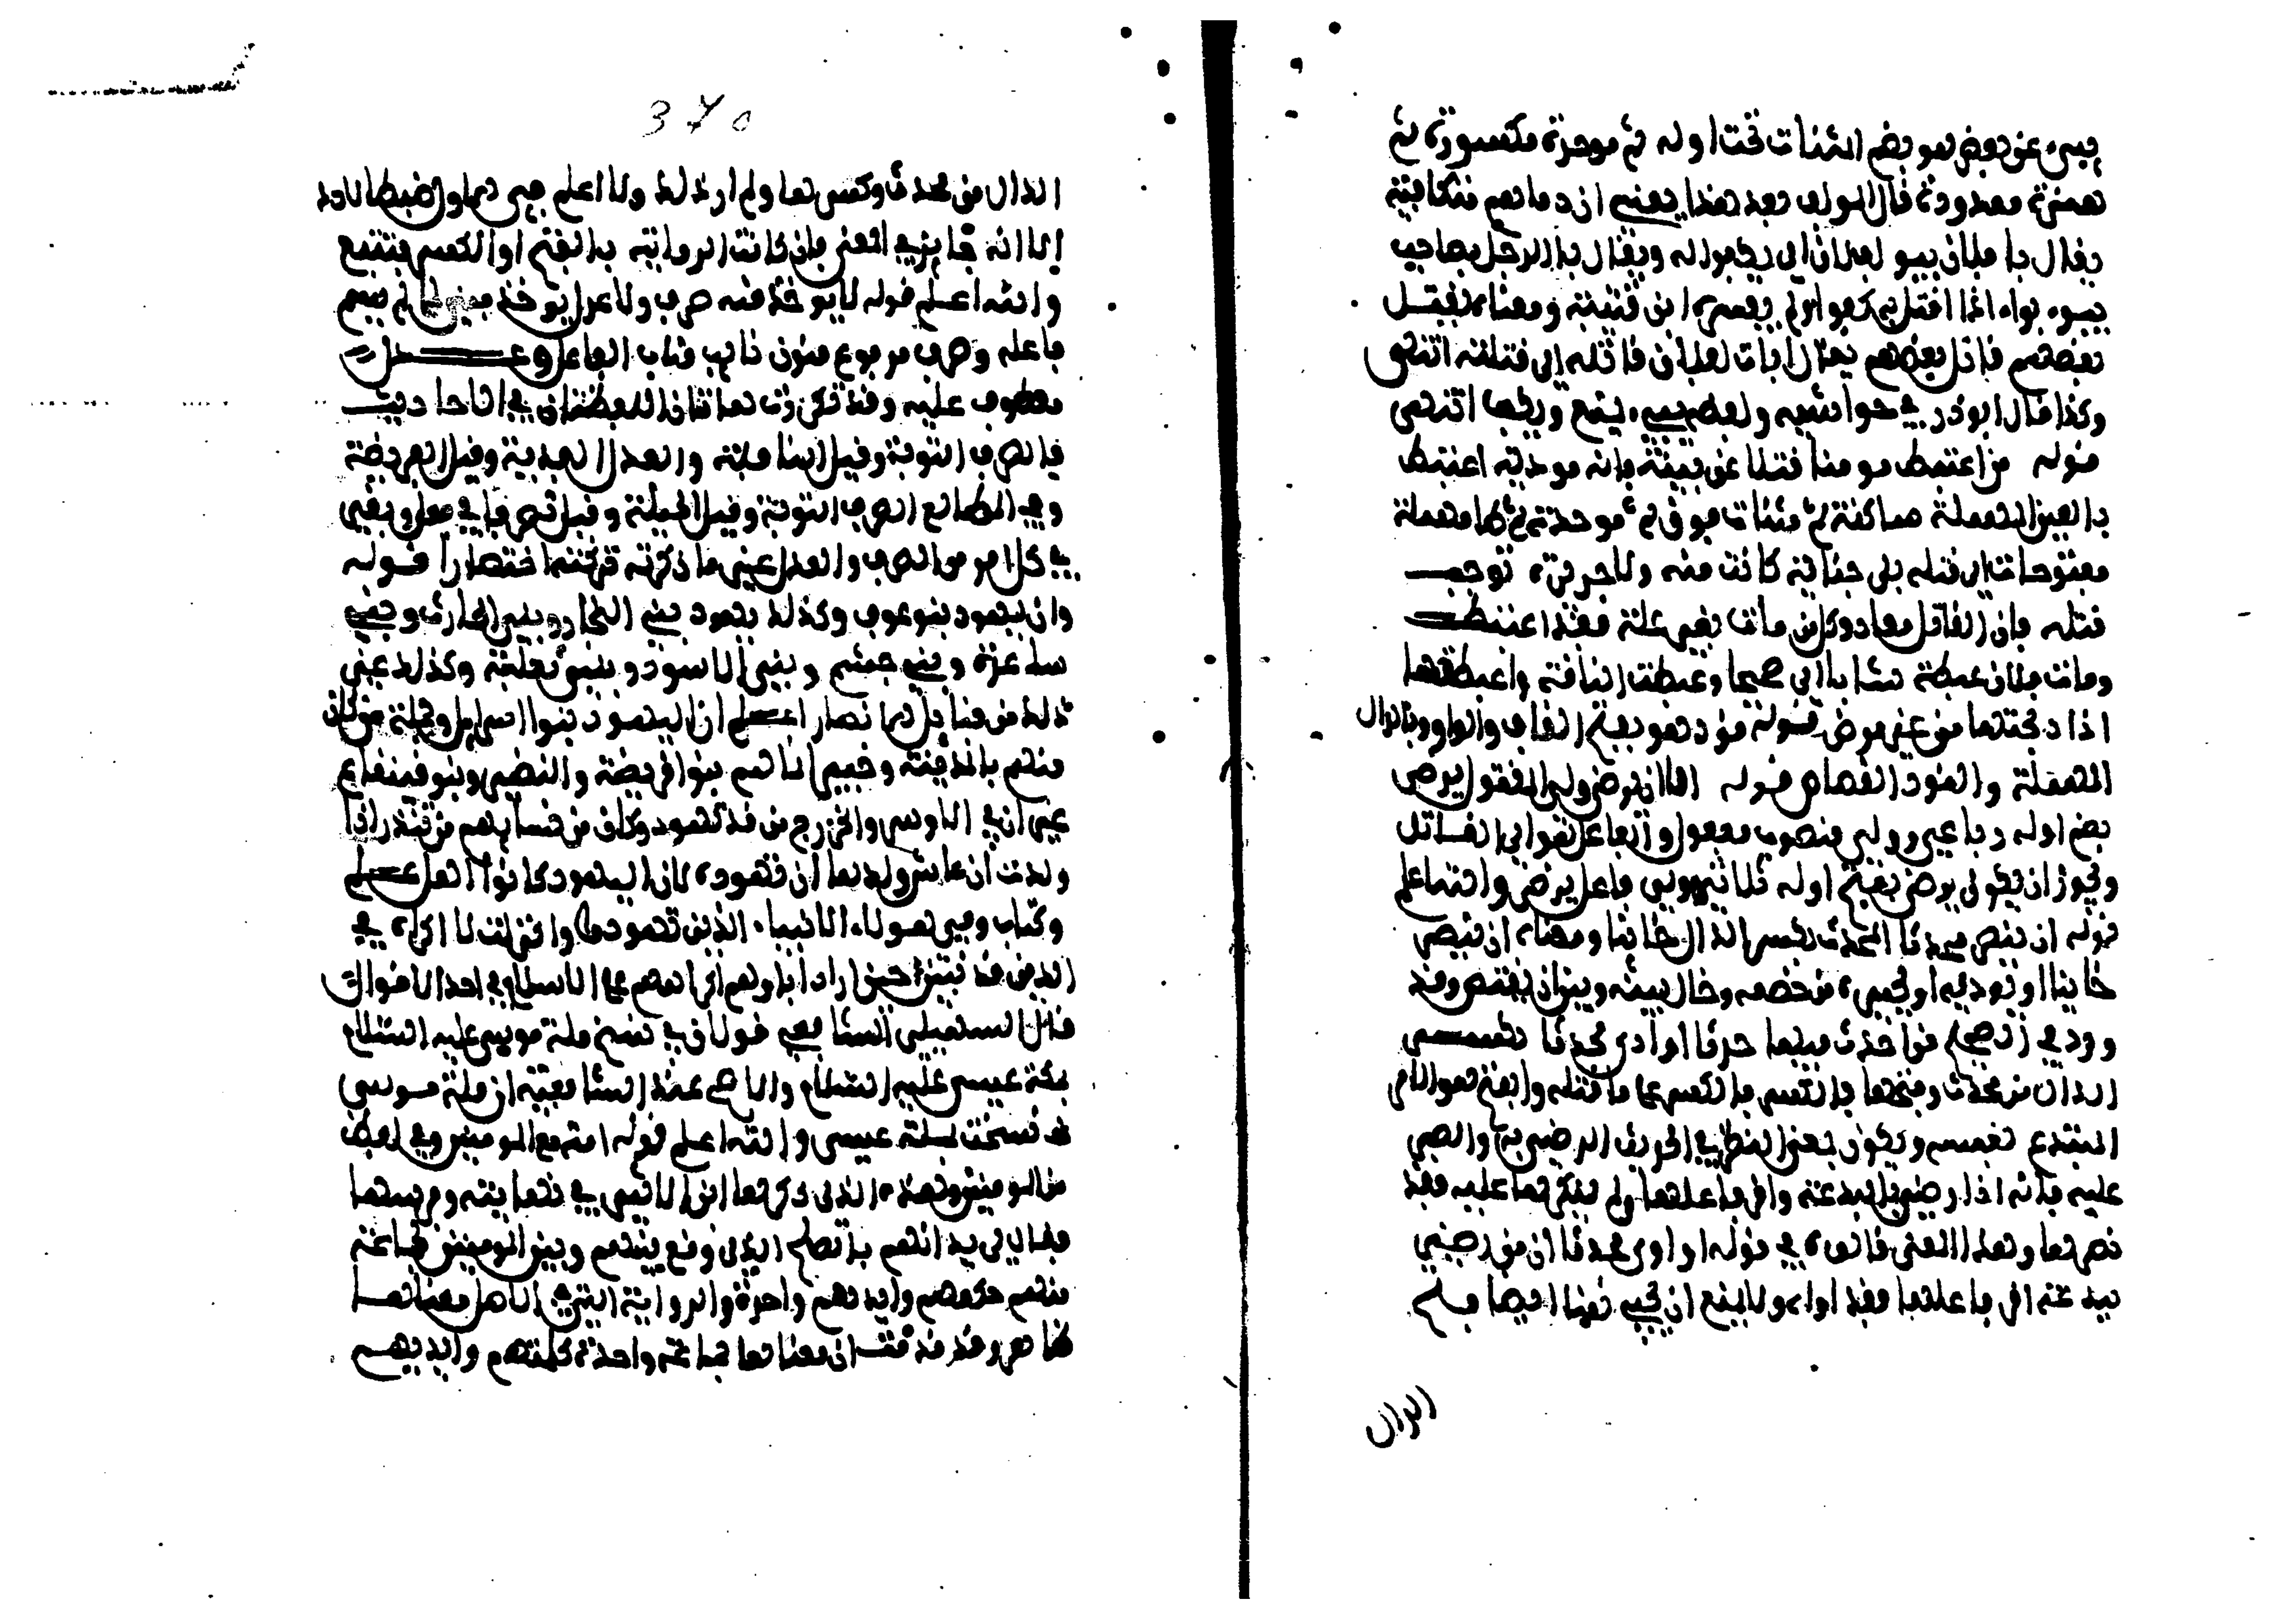 يبىء عن بعض هو بضم المثنات تحت اوله ثم موحدة مكسورة ثم
همزة ممدودة قال المولف بعد هذا يعني ان دماءهم متكافية
يقال ما فلان ببواء لفلان اي بكفو له ويقال باء الرجل بصاحبه
يبوء بواء اذا اقتل به كفوا ابن قتيبة ومعناه يقتل
بعضهم قاتل بعضهم يقال ابات لفلان قاتله اي قتلته انتهى
وكذا قال ابوذر في حواشيه ولفظه يبىء يمنع ويكف انتهى
قوله من اعتبط مومنا قتلا عن بينة فانه قود به اعتبط
بالعين المهملة ساكنة ثم مثنات فوق ثم موحدة ثم طا مهملة
مفتوحات اي قتله بلا جناية كانت منه ولا جريرة توجب
قتله فان القاتل يقاد وكل من مات بغير علة فقد اعتبط
ومات فلان عبطة شابا اي صحيحا وعبطت الناقة واعبطتها
اذا ذبحتها من غير مرض قوله قود هو بفتح القاف والواو وبالدال
المهملة والقود القصاص قوله الا ان يرضى ولي المقتول يرضى
بضم اوله رباعي وولي منصوب مفعول والفاعل هو اي القاتل
ويجوز ان يكون يرضى بفتح اوله ثلاثي وولي فاعل يرضى والله اعلم
قوله ان ينصر محدثا المحدث بكسر الدال جانيا ومعناه ان ينصر
جانيا او يوويه او يجيره من خصمه وحال بينه وبين ان يقتص وقد
ورد في الصحيح من احدث فيها حدثا او آوى محدثا بكسر
الدال من محدث وفتحها فالكسر على ما قبله والفتح هو الامر
المبتدع نفسه ويكون بمعنى الايواء اليه الرضى به والصبر
عليه فانه اذا رضي بالبدعة واقر فاعلها ولم ينكرها عليه فقد
نصرها وهذا المعنى قالوه في قوله او اوى محدثا ان من رضي
بيدعة اقر فاعلها فقد اواه ولا يمنع ان يجيء هنا ايضا فسلم
الدال
370
الدال من محدث وكسرها ولم ار ذلك ولا اعلم
الا انه جايز في المعنى فان كانت الرواية بالفتح او الكسر فتتبع
والله اعلم قوله لا يوخذ منه صرف ولا عدل يوخذ مبني لما لم يسم
فاعله وصرف مرفوع منون نايب مناب الفاعل وعدل
معطوف عليه وقد تكررت هاتان اللفظتان في الاحاديث
فالصرف التوبة وقيل النافلة والعدل الفدية وقيل الفريضة
وفي المطالع الصرف التوبة وقيل الحيلة وقيل
في كل امر من الصرف والعدل غير ما ذكرته تركته اختصارا قوله
وان يهود بنو عوف وكذلك يهود بني النجار وبني الحارث وبني
ساعدة وبني جشم وبني الاوس وبني ثعلبة وكذلك غير
ذلك من قبايل الانصار اعلم ان اليهود بنوا اسرايل وجملة من كان
منهم بالمدينة وخيبر انما هم بنوا قريظة والنضير وبنو قينقاع
غير ان في الاوس والخزرج من قد تهود وكان من نسايهم من تنذر اذا
ولدت ان عاش ولدها ان تهوده لان اليهود كانوا اهل علم
وكتاب وفي هولاء الابناء الذين تهودوا نزلت لا اكراه في
الدين قد تبين حين اراد اباوهم اكراههم على الاسلام في احد الاقوال
قال السهيلي للشافعي قولان في نسخ ملة موسى عليه السلام
بملة عيسى عليه السلام والاصح عند الشافعية ان ملة موسى
قد نسخت بملة عيسى والله اعلم قوله امة مع المومنين وفي لفظ
من المومنين وهذه الذي ذكرها ابن الاثير في نهايته ومر بها
فقال يريد انهم بالصلح الذي وقع بينهم وبين المومنين كجماعة
منهم كلمتهم وايديهم واحدة والرواية التي في الاصل معناها
ظاهر وقد قدمت ان معناها جماعة واحدة كلمتهم وايديهم